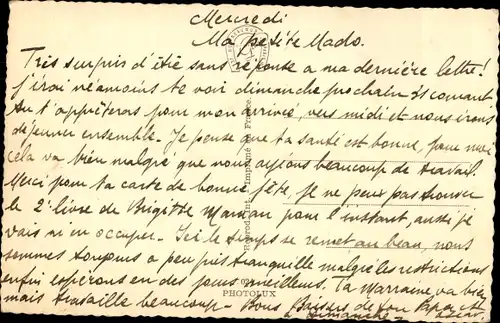 Mercredi
Ma petite Mado.
Très surpris d'être sans réponse a ma dernière lettre!
j'irai néamoins te voir dimanche prochain 21 courant
tu t'apprêteras pour mon arrivée, vers midi et nous irons
déjeuner ensemble. Je pense que ta santé est bonne, pour moi
cela va bien malgré que nous ayions beaucoup de travail.
Merci pour ta carte de bonne fête, je ne peux pas trouver
le 2e livre de Brigitte Maman pour l'instant, aussi je
vais m'en occuper. Ici le temps se remet au beau, nous
sommes toujours a peu près tranquille malgré les restrictions
enfin espérons en des jours meilleurs. ta Marraine va bien
mais travaille beaucoup. Bons Baisers de ton Papa
a dimanche
PHOTOLUX